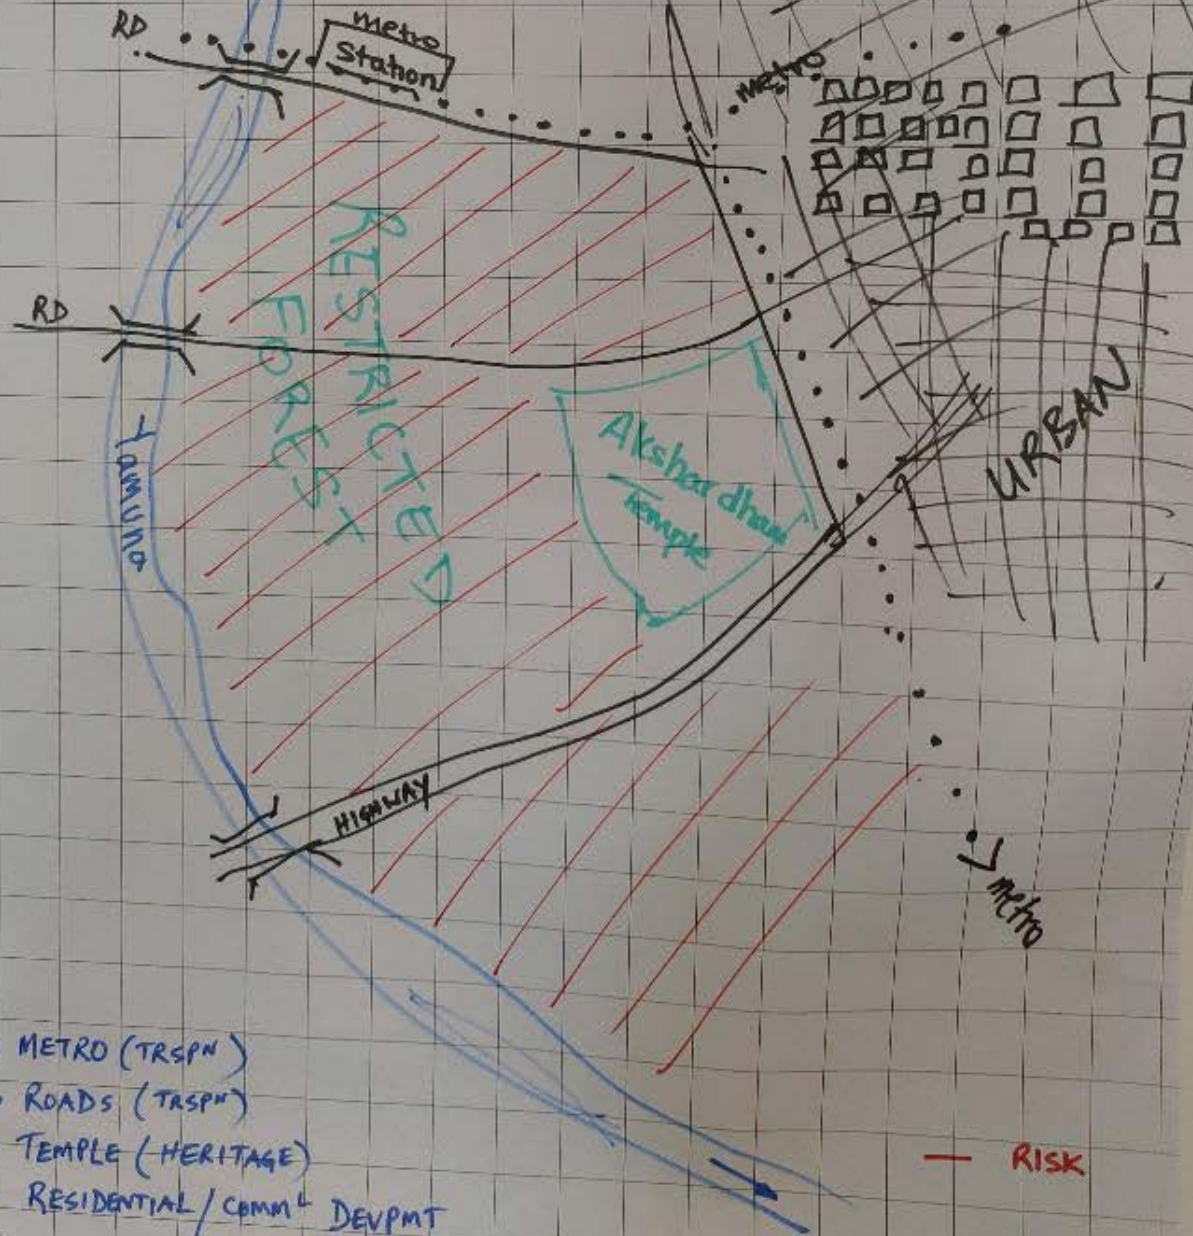 RD
metro
Station
metro
RD
RISTRICTED
FOREST
Akshardham
Temple
URBAN
Yamuna
HIGHWAY
metro
METRO (TRSPN)
ROADS (TRSPN)
TEMPLE (HERITAGE)
RESIDENTIAL / COMML DEVPMT
— RISK